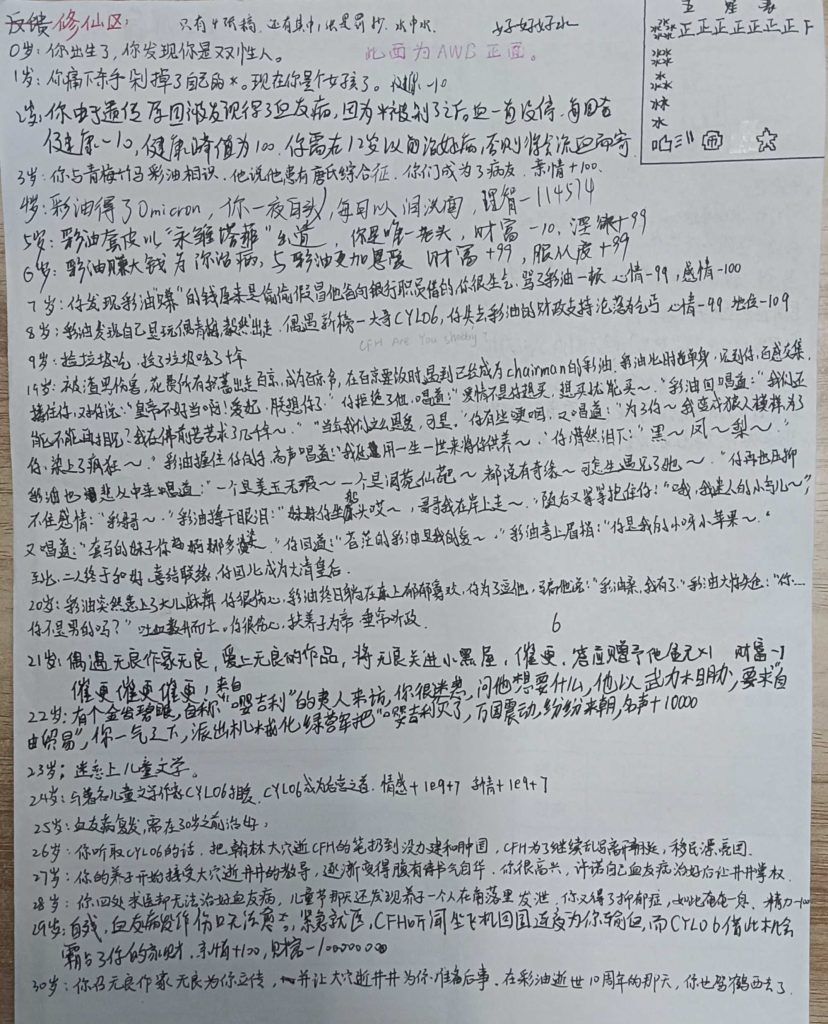 反馈 修仙区：
只有4张稿，还有其中，水中水
好好好水
此面为AWB正面。
正正正正正下
0岁：你出生了，你发现你是双性人。
1岁：你痛下杀手剁掉了自己的*。现在你是个女孩了。健康-10
2岁：你由于遗传原因被发现得了血友病，因为*被割了之后血一直没停，每回合
健康-10，健康峰值为100。你需在12岁以前治好病，否则将会流血而寄
3岁：你与青梅竹马彩油相识，他说他患有唐氏综合征，你们成为了病友，亲情+100。
4岁：彩油得了Omicron，你一夜白头，每日以泪洗面，理智-114514
5岁：彩油套皮以"永雏塔菲"出道，你是唯一老头，财富-10，淫欲+99
6岁：彩油赚大钱为你治病，与彩油更加恩爱 财富+99，服从度+99
7岁：你发现彩油"赚"的钱原来是偷偷假冒他爸向银行职员借的，你很生气，骂了彩油一顿 心情-99，感情-100
8岁：彩油发现自己是玩偶青梅，毅然出走，偶遇新榜一大哥CYL06，你失去彩油的财政支持沦落为乞丐 心情-99 地位-109
CFH Are You shabby?
9岁：捡垃圾吃，捡了垃圾吃了十年
19岁：被渣男伤害，花费所有积蓄出走百京，成为百京爷，在百京要饭时遇到已经成为chairman的彩油，彩油此时在单身，见到你，百感交集，
搂住你，对你说："皇帝不好当啊！爱妃，朕想你了。"你拒绝了他，唱道："爱情不是你想买，想买就能买～"彩油回唱道："我们还
能不能再见？我在佛前苦苦求了几千年～""当年我们这么恩爱，可是。"你有些哽咽，又唱道："为了你～我变成狼人模样，为了
你，染上了疯狂～。"彩油搂住你的手，高声唱道："我用一生一世来将你供养～。"你潸然泪下："黑～凤～梨～。"
彩油也悲从中来，唱道："一个是美玉无瑕～一个是阆苑仙葩～都说有奇缘～可怎生遇见了她～。"你再也压抑
不住感情："彩哥～。"彩油擦干眼泪："妹妹你坐船头哎～，哥哥我在岸上走～。"随后又紧紧抱住你："哦，我迷人的小鸟儿～"，
又唱道："套马的妹子你～。"你回道："苍茫的彩油是我的爱～。"彩油喜上眉梢："你是我的小呀小苹果～。"
至此，二人终于和好，喜结联缘，你因此成为大清皇后。
20岁：彩油突然患上了大儿麻痹，你很伤心，彩油终日躺在床上郁郁寡欢，你为了逗他，骗他说："彩油桑，我有了。"彩油大惊失色："你……
你不是男的吗？"吐血数升而亡。你很伤心，扶养子为帝，垂帘听政。
6
21岁：偶遇无良作家无良，爱上无良的作品，将无良关进小黑屋，催更，答应赠予他金元×1 财富-1
催更催更催更！
22岁：有个金发碧眼，自称来自"嘤吉利"的夷人来访，你很迷惑，问他想要什么，他以武力威胁，要求"自
由贸易"，你一气之下，派出机械化绿营军把"嘤吉利灭了，万国震动，纷纷来朝，名声+10000
23岁：迷恋上儿童文学。
24岁：与著名儿童文学作家CYL06相爱，CYL06成为后宫之首，情感+1e9+7 亲情+1e9+7
25岁：血友病复发，需在30岁之前治好；
26岁：你听取CYL06的话，把翰林大穴逝CFH的笔扔到没力建和肿囯，CFH为了继续，移民漂亮囯。
27岁：你的养子开始接受大穴逝井井的教导，逐渐变得腹有诗书气自华，你很高兴，许诺自己血友病治好后让井井掌权
28岁：你四处求医却无法治好血友病，儿童节那天还发现养子一个人在角落里发泄，你又得了抑郁症，如此奄奄一息，精力-100
29岁：自残，血友病发作伤口无法愈合，紧急就医，CFH听闻坐飞机回囯连夜为你输血，而CYL06借此机会
霸占了你的家财，亲情+100，财富-100000000
30岁：你召无良作家无良为你立传，并让大穴逝井井为你准备后事，在彩油逝世10周年的那天，你也驾鹤西去了